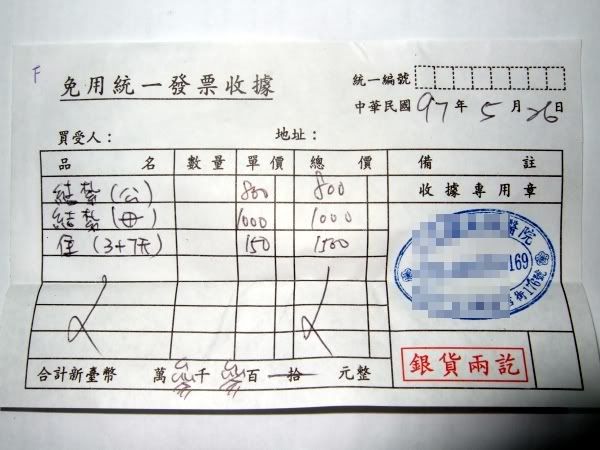 F
免用統一發票收據
統一編號
中華民國97年5月26日
買受人： 地址：
品名 數量 單價 總價 備註
結紮(公) 800 800 收據專用章
結紮(母) 1000 1000
住(3+7天) 150 1500
醫院
169
街176號
合計新臺幣 萬參千參百 拾 元整
銀貨兩訖